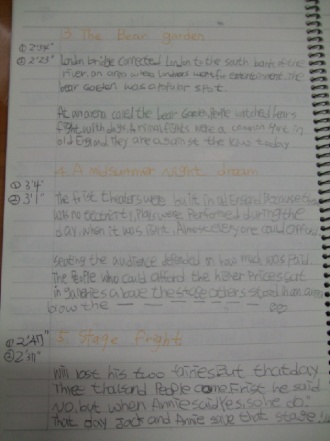 3. The Bear garden
① 2'34"
② 2'23"
London bridge connected London to the south bank of the
river. an area where Londoners went for entertainment. The
bear Garden was a popular spot.
At an arena called the bear Garden, People watched bears
fight with dogs. Animal fights were a common in
old England they are against the law today
4. A midsummer night dream
① 3'4"
② 3'1"
The frist theaters were built in old England Because there
was no electricity, Plays were Performed during the
day, when it was light. Almost every one could afford
seating the audience depended on how much was paid.
The People who could afford the higher Prices sat
in galleries above the stage others stood
blow the
5. Stage fright
① 2'47"
Will lost his two fairies. But that day
Three thousand People Came. First he said
No. but when Annie said Yes, so he do.
That day Jack and Annie that stage